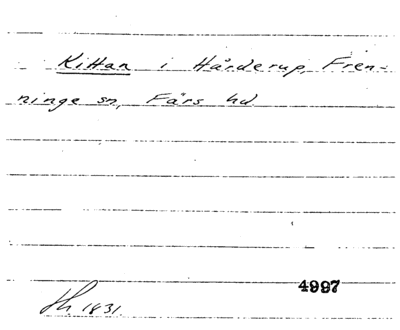 Kittan i Hårderup, Fren-
ninge sn, Färs hd
4997
1831.